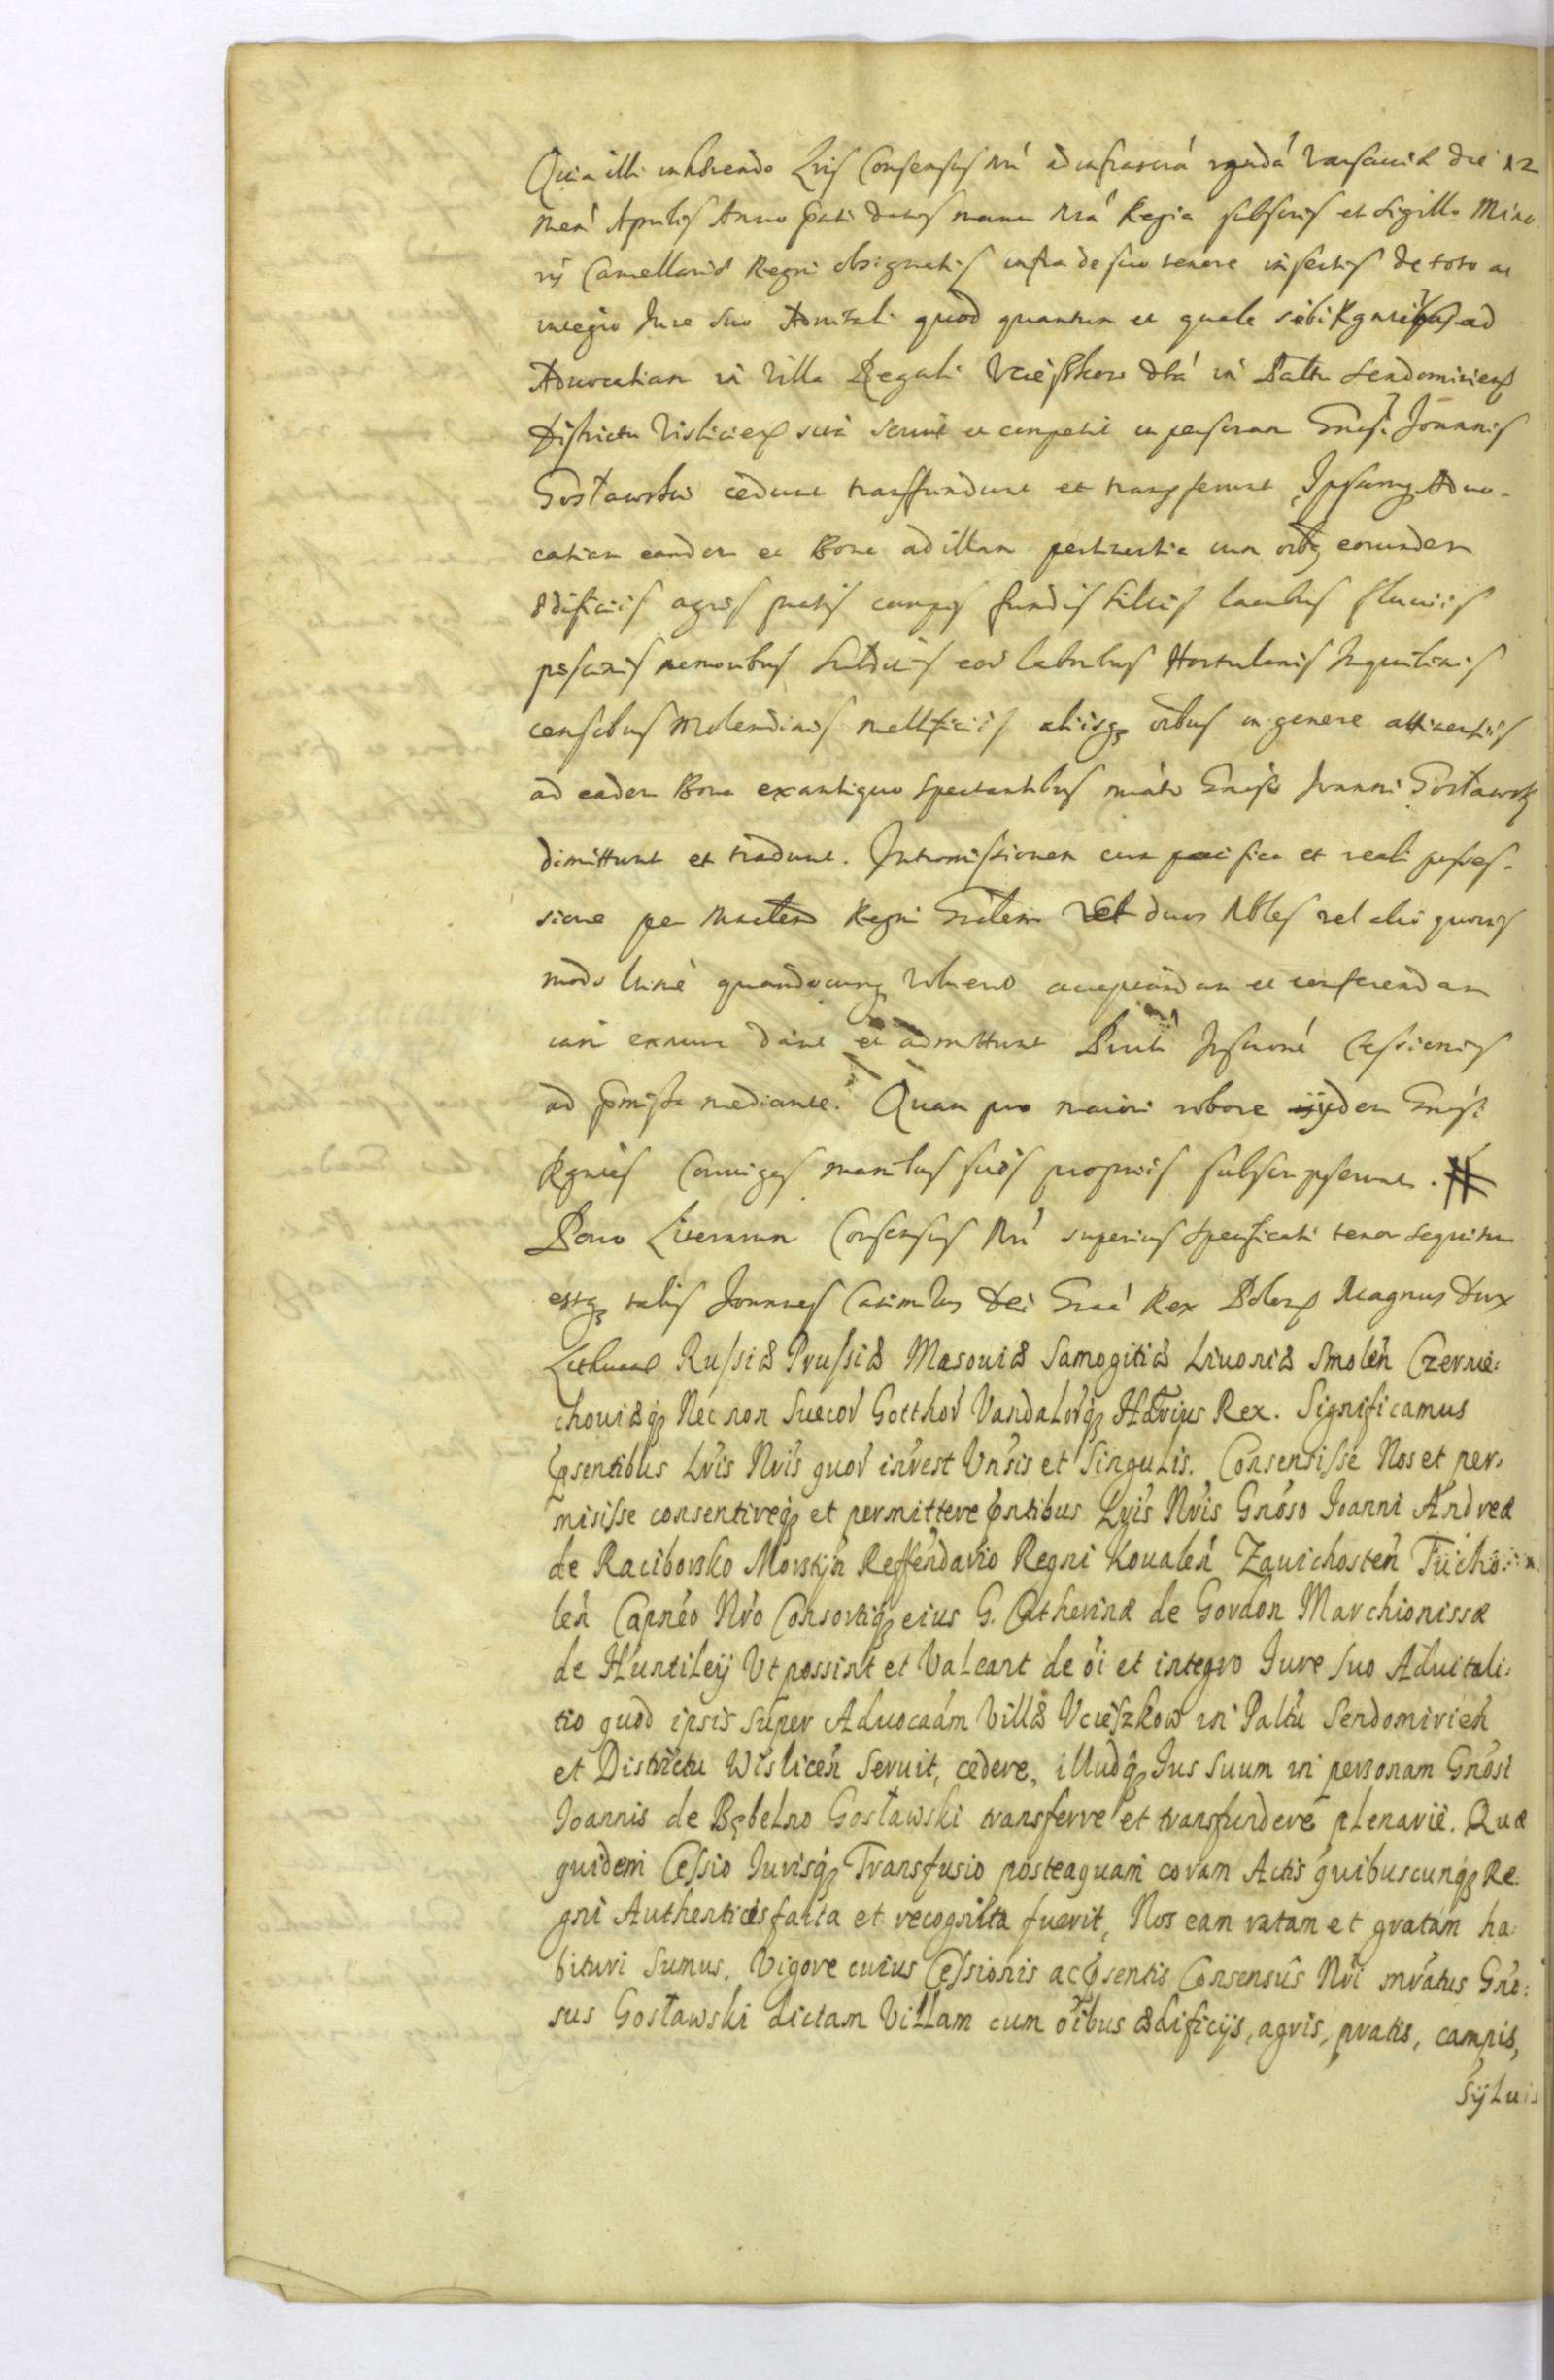 Quia illi inhærendo Lris Consensus Nri ad infrascrá Varsaviæ die 12
Men Aprilis Anno pnti datis manu Nrá Regia subscris et Sigillo Mino
ris Cancellariæ Regni obsignatis infra de suo tenore insertis de toto ac
integro Jure suo Aduitali quod quantum et quale sibi Rgntibus ad
Aduocatiam in Villa Regali Vcieszkow dtá in Palttu Sendomirien
Districtu Vislicien sitá seruit et competit in personam Gnosi Joannis
Gosławski cedunt transfundunt et transferunt Ipsamq Aduo-
catiam eandem et Bona ad illam pertinentia cum oibq eorundem
ædificiis agris pratis campis fundis siluis lacubus fluuiis
piscinis nemoribus Subditis eor laboribus Hortulanis Inquilinis
censibus Molendinis mellificiis aliisq oibus in genere attinentiis
ad eadem Bona ex antiquo spectantibus mnáto Gnoso Joanni Gosławsk
dimittunt et tradunt. Intromissionem cum pacifica et reali posses-
sione per Mnrlem Regni Gnrlem vel duos Nbles vel alio quouis
modo hinc quandocunq voluerit accipiendam et conferendam
iam exnunc dant et admittunt Pnti Inscrone Cessionis
ad pmissa mediante. Quam pro maiori robore iijdem Gnosi
Rgntes Coniuges manibus suis proprijs subscripserunt.
Porro Literarum Consensus Nri superius specificati tenor sequitur
estq talis Joannes Casimirus Dei Graá Rex Polon Magnus Dux
Lithuaæ Russiæ Prussiæ Masouiæ Samogitiæ Liuoniæ Smolen Czernie:
chouiæq Nec non Suecor Gotthor Vandalorq Hærius Rex. Significamus
psentibus Lris Nris quor intrest Vnsis et Singulis. Consensisse Nos et per-
misisse consentireq et permittere pntibus Lris Nris Gnoso Joanni Andreæ
de Raciborsko Morstijn Reffendario Regni Koualen Zauichosten Tucho-
len Capneo Nro Consortiq eius G. Catherinæ de Gordon Marchionissæ
de Huntileij Vt possint et Valeant de oi et integro Jure suo Aduitali:
tio quod ipsis super Aduocaám Villæ Vcieszkow in Paltu Sendomirien
et Districtu Wislicen seruit, cedere, illudq Ius suum in personam Gnosi
Joannis de Bębelno Gosławski transferre et transfundere plenarie. Quæ
quidem Cessio Jurisq Transfusio posteaquam coram Actis quibuscunq Re
gni Authenticis facta et recognita fuerit, Nos eam ratam et gratam ha:
bituri sumus. Vigore cuius Cessionis ac psentis Consensus Nri mratus Gno:
sus Gosławski dictam Villam cum oibus ædificijs, agris, pratis, campis,
Sylui